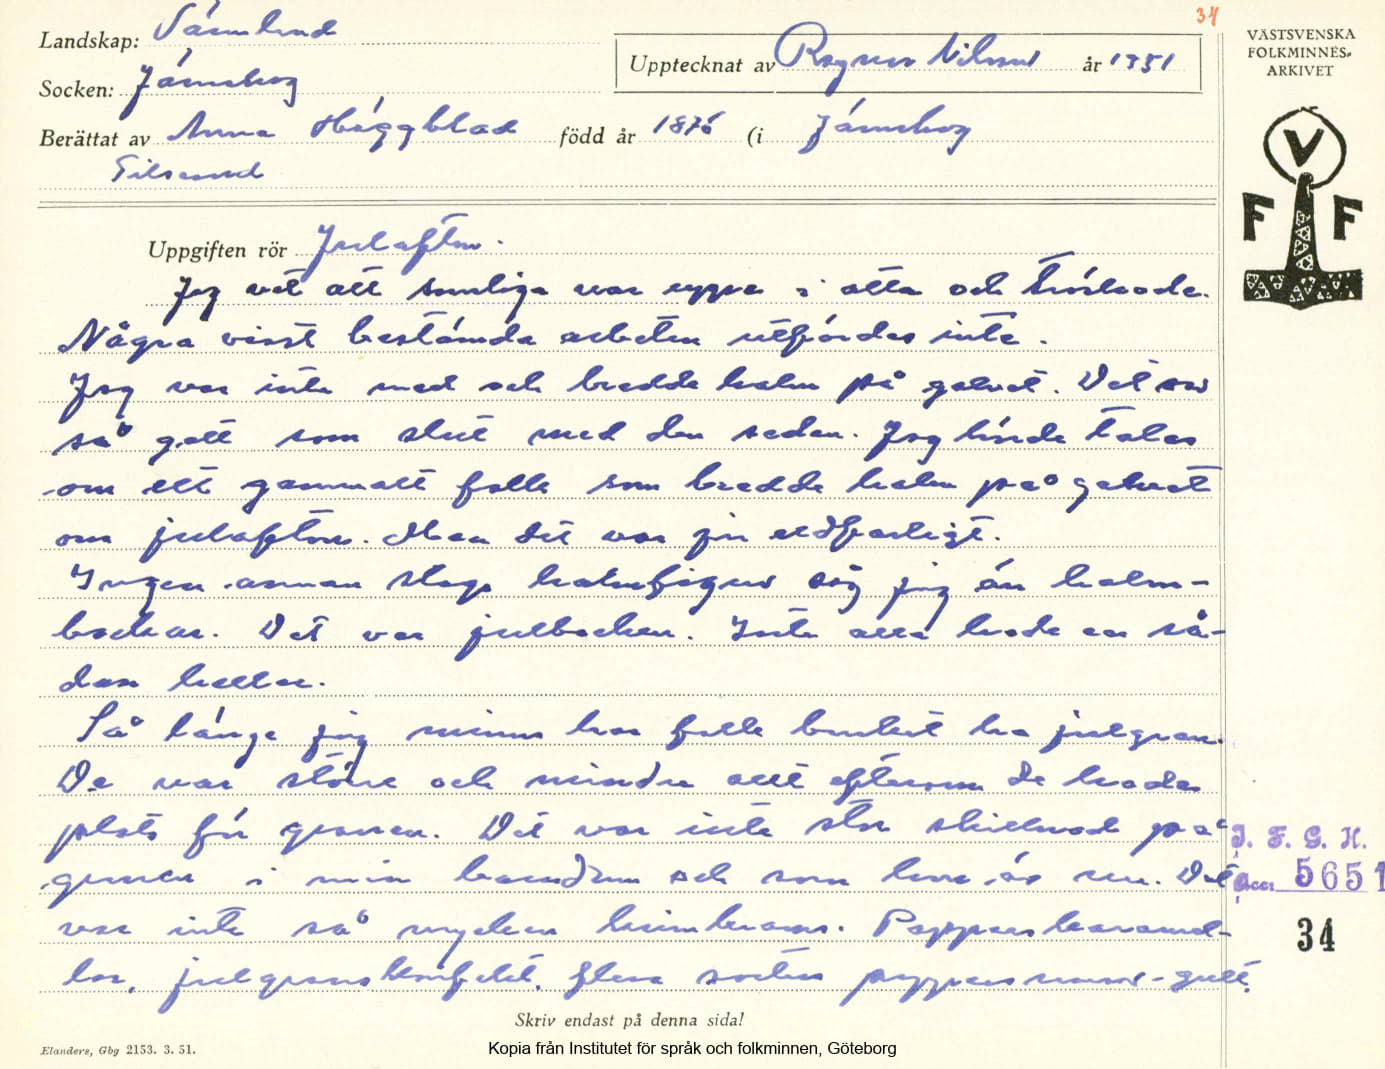 34
Landskap: Värmland
Upptecknat av Ragnar Nilsson år 1951
Socken: Järnskog
Berättat av Anna Häggblad född år 1876 (i Järnskog
VÄSTSVENSKA
FOLKMINNES-
ARKIVET
V
F F
Uppgiften rör Julafton.
Jag vet att somliga var uppe i otta och tröskade.
Några visst bestämda arbeten utfördes inte.
Jag var inte med och bredde halm på golvet. Det var
så gott som slut med den seden. Jag hörde talas
om ett gammalt folk som bredde halm på golvet
om julafton. Men det var ju eldfarligt.
Ingen annan slags halmfigur såg jag än halm-
bockar. Det var julbocken. Inte alla hade en så-
dan heller.
Så länge jag minns har folk brukat ha julgran.
De var större och mindre allt eftersom de hade
plats för granen. Det var inte stor skillnad på
granen i min barndom och som hon är nu. Det
var inte så mycken krimskrams. Papperskaramel-
ler, julgranskonfekt, flera sorter pappersremsor - gult,
I. F. G. H.
Acc. 5651
34
Skriv endast på denna sida!
Elanders, Gbg 2153. 3. 51.
Kopia från Institutet för språk och folkminnen, Göteborg